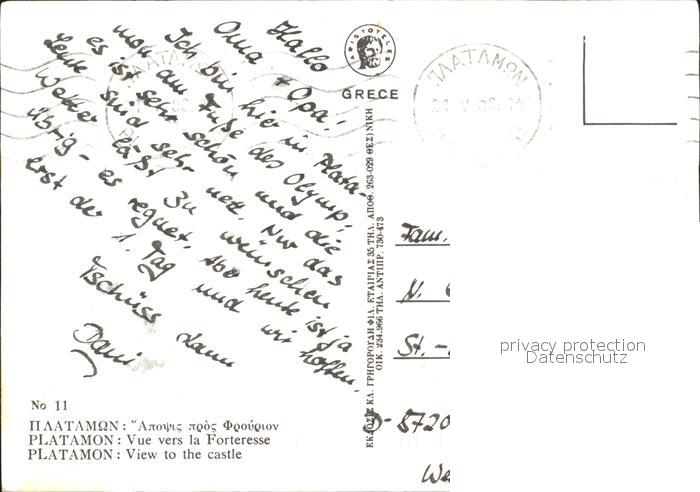 Hallo
Oma + Opa!
Ich bin hier in Plata-
mon am Fuße des Olymp,
es ist sehr schön und die
Leute sind sehr nett. Nur das
Wetter läßt zu wünschen
übrig - es regnet. Abe heute ist ja
erst der 1. Tag und wir hoffen.
Tschüss dann
Dani
ARISTOTELES
GRECE
ΠΛΑΤΑΜΩΝ
ΕΚΔΟΣΙΣ ΚΛ. ΓΡΗΓΟΡΟΥΔΗ ΦΙΛ. ΕΤΑΙΡΙΑΣ 35 ΤΗΛ. ΑΠΟΘ. 263-029 ΘΕΣ)ΝΙΚΗ
ΟΙΚ. 234.966 ΤΗΛ. ΑΝΤΙΠΡ. 730-473
Fam.
N.
St. -
D- 8720
We
privacy protection
Datenschutz
No 11
ΠΛΑΤΑΜΩΝ : Ἄποψις πρὸς Φρούριον
PLATAMON : Vue vers la Forteresse
PLATAMON : View to the castle